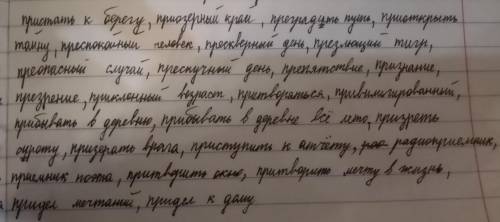 пристать к берегу, приозёрный край, преградить путь, приоткрыть
тайну, преспокойный человек, прескверный день, презлющий тигр,
преопасный случай, прескучный день, препятствие, призрание,
презрение, приклонный возраст, претвориться, привилигированный,
прибывать в деревню, прибывать в деревне всё лето, призреть
сироту, призерать врага, приступить к отчёту, радиоприемник,
приемник поэта, притворить окно, притворить мечту в жизнь,
придел мечтаний, придел к дому